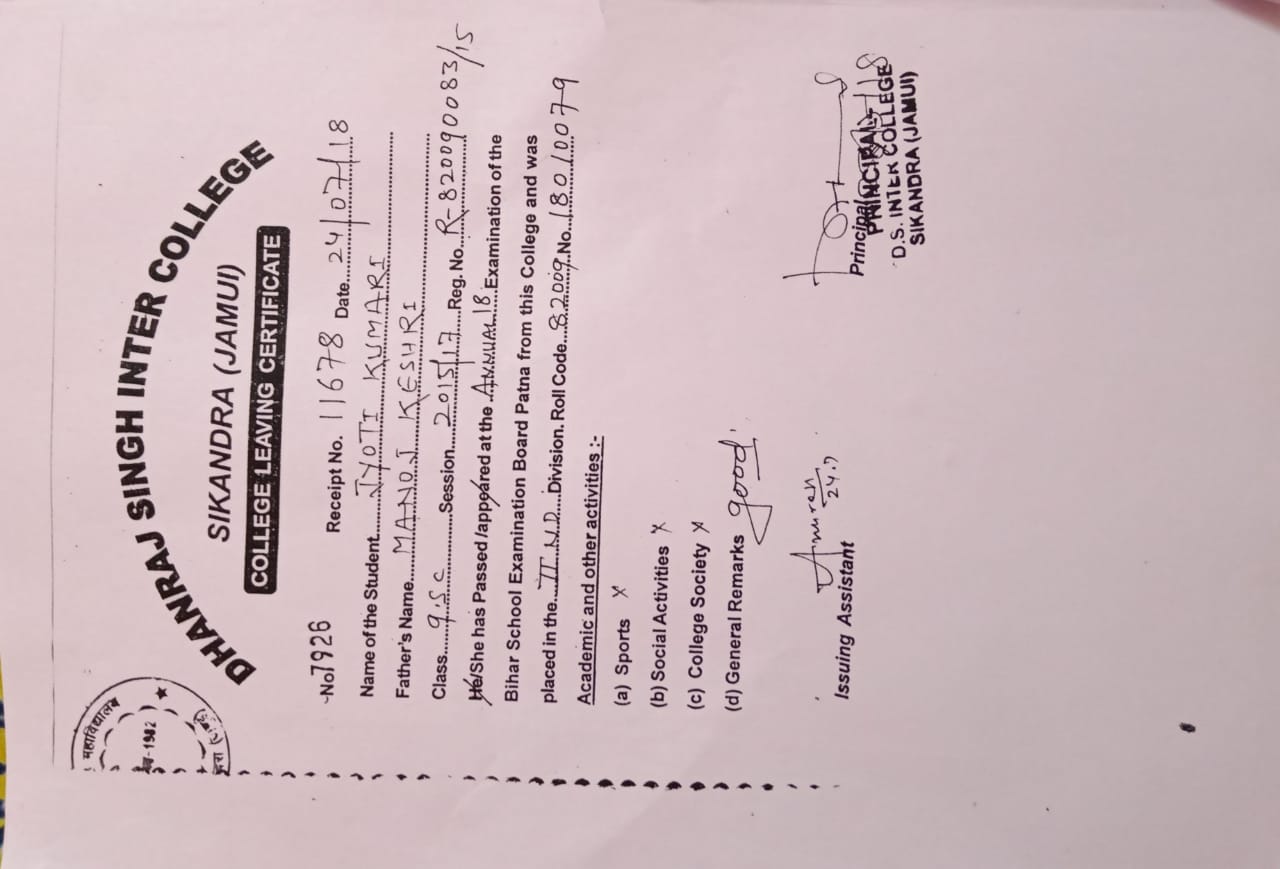 महाविद्यालय
-1982
DHANRAJ SINGH INTER COLLEGE
SIKANDRA (JAMUI)
COLLEGE LEAVING CERTIFICATE
No 7926 Receipt No. 11678 Date 24/07/18
Name of the Student JYOTI KUMARI
Father's Name MANOJ KESHRI
Class I.Sc Session 2015/17 Reg. No. R-820090083/15
He/She has Passed/appeared at the ANNUAL 18 Examination of the
Bihar School Examination Board Patna from this College and was
placed in the IIND Division. Roll Code 82009 No. 18010079
Academic and other activities :-
(a) Sports X
(b) Social Activities X
(c) College Society X
(d) General Remarks good
24.7
Issuing Assistant
Principal
PRINCIPAL
D.S. INTER COLLEGE
SIKANDRA (JAMUI)